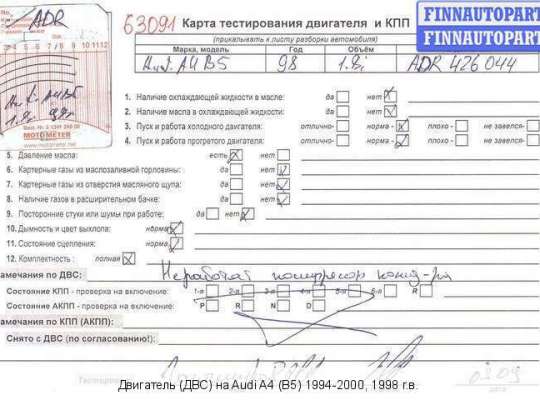 ADR
63091 Карта тестирования двигателя и КПП
FINNAUTOPART
FINNAUTOPART
(прикалывать к листу разборки автомобиля)
Марка, модель Год Объём
Audi A4 B5 98 1.8i ADR 426 044
6 7 8 9 10 11 12
Audi A4 B5
1.8i 98г.
MOTOMETER
www.motometer.de
1. Наличие охлаждающей жидкости в масле: да нет
2. Наличие масла в охлаждающей жидкости: да нет
3. Пуск и работа холодного двигателя: отлично- норма- плохо- не завелся-
4. Пуск и работа прогретого двигателя: отлично- норма- плохо- не завелся-
5. Давление масла: есть нет
6. Картерные газы из маслозаливной горловины: да нет
7. Картерные газы из отверстия масляного щупа: да нет
8. Наличие газов в расширительном бачке: да нет
9. Посторонние стуки или шумы при работе: да нет
10. Дымность и цвет выхлопа: норма
11. Состояние сцепления: норма
12. Комплектность : полная
амечания по ДВС: Не работает компрессор конд-ра
Состояние КПП - проверка на включение: 1-я 2-я 3-я 4-я 5-я 6-я R
Состояние АКПП - проверка на включение: P R N D
амечания по КПП (АКПП):
Снято с ДВС (по согласованию!):
Двигатель (ДВС) на Audi A4 (B5) 1994-2000, 1998 г.в.